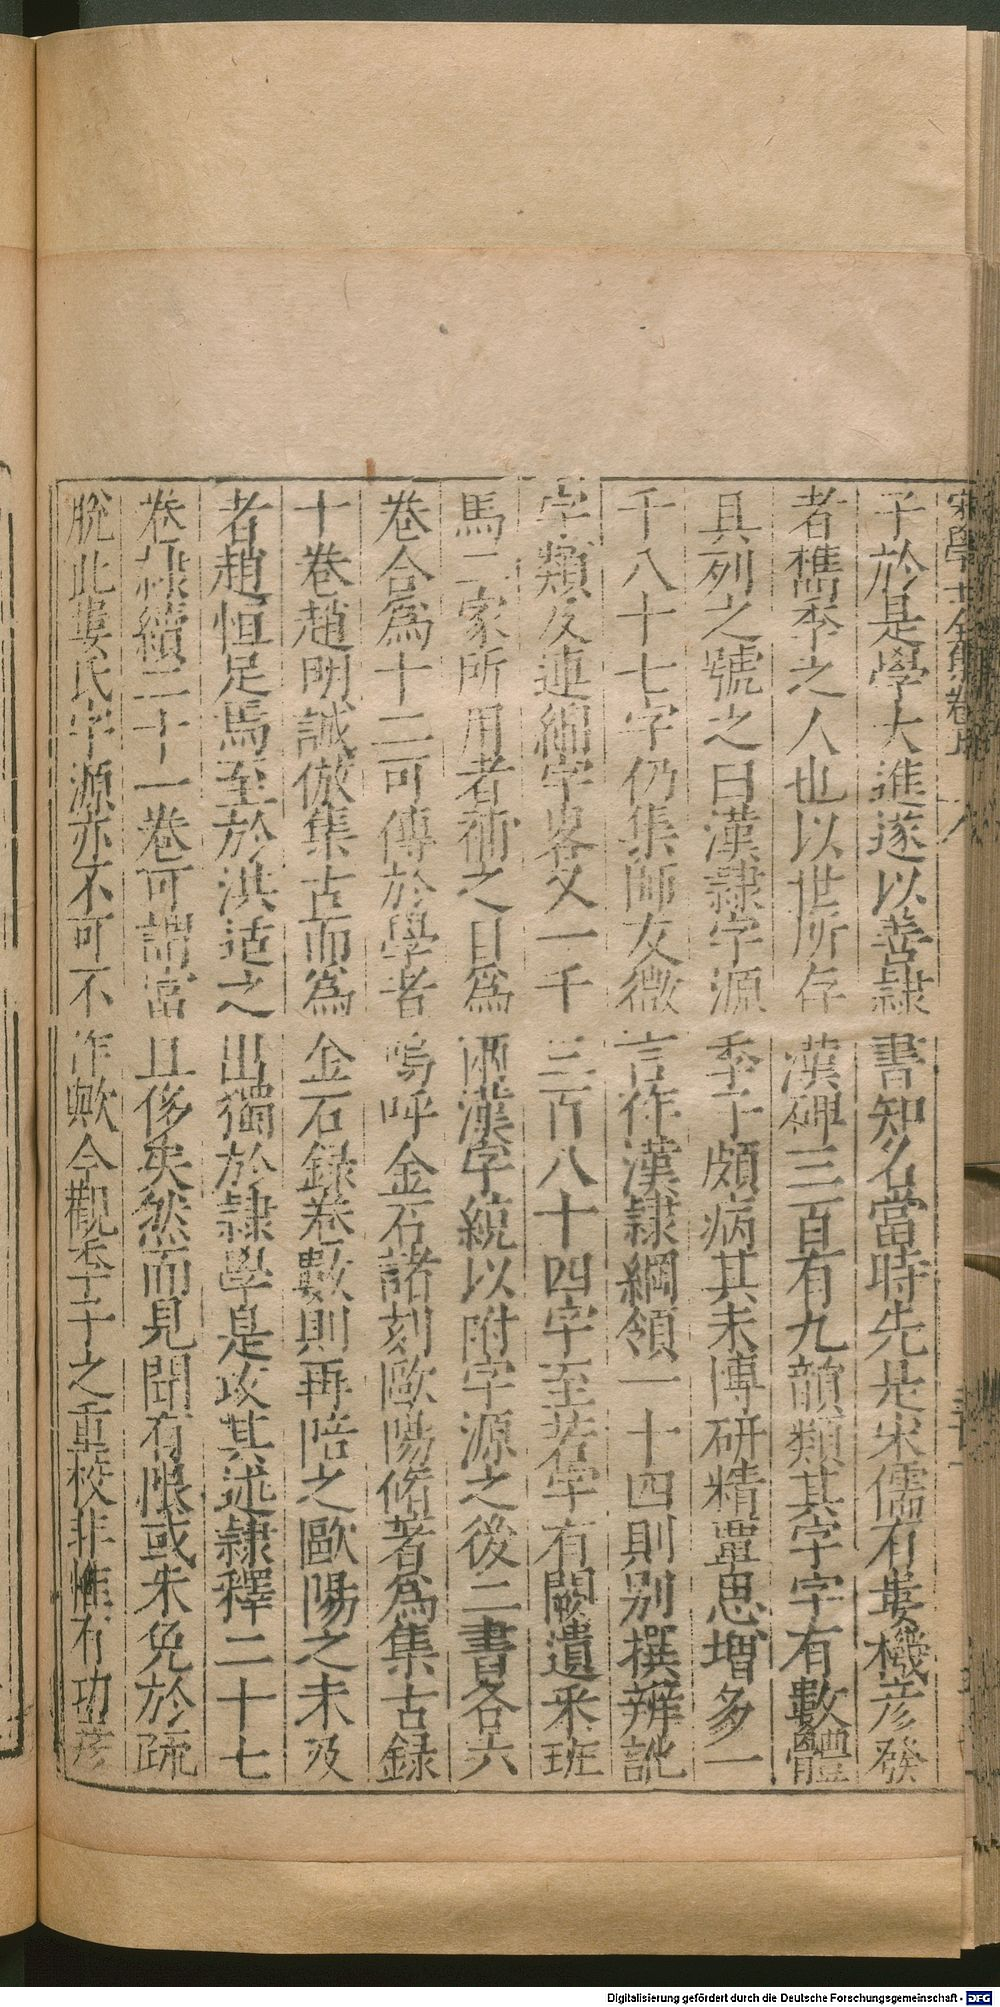 子於是學大進遂以善隸書知名當時先是宋儒有婁機彥發
者檇李之人也以世所存漢碑三百有九韻類其字字有數體
具列之號之曰漢隸字源季子頗病其未博研精覃思增多一
千八十七字仍集師友微言作漢隸綱領一十四則別撰辨訛
字類及連綿字畧又一千三百八十四字至若字有闕遺釆班
馬二家所用者補之目爲兩漢字統以附字源之後二書各六
卷合爲十二可傳於學者嗚呼金石諸刻歐陽脩著爲集古錄
十卷趙明誠倣集古而爲金石録卷數則再陪之歐陽之未及
者趙恒足焉至於洪适之出獨於隸學是攻其述隸釋二十七
卷隸續二十一卷可謂富且侈矣然而見聞有限或未免於疏
脫此婁氏字源亦不可不作歟今觀季子之重校非惟有功彥
宋學士全集卷
Digitalisierung gefördert durch die Deutsche Forschungsgemeinschaft - DFG